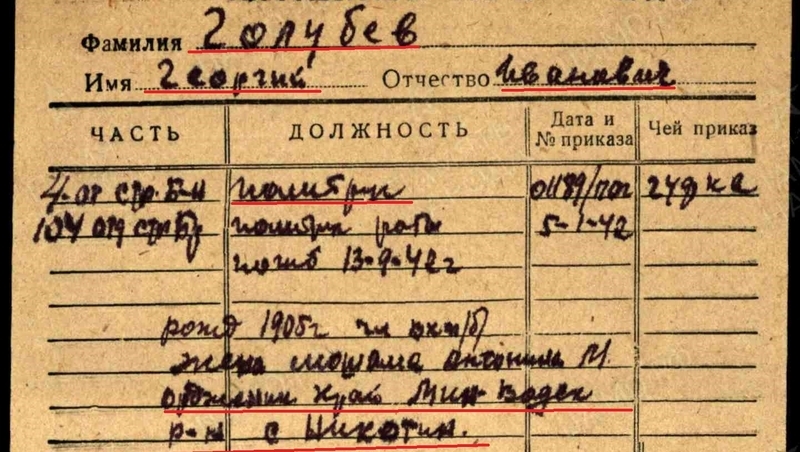 Фамилия Голубев
Имя Георгий Отчество Иванович
ЧАСТЬ ДОЛЖНОСТЬ Дата и № приказа Чей приказ
4 от стр. б-н политрук 24 
104 отд стр бр политрук роты 5-1-42
погиб 13-9-42г
рожд 1905г чл вкп/б/
жена Антонина М.
край Мин Водск
р-н с